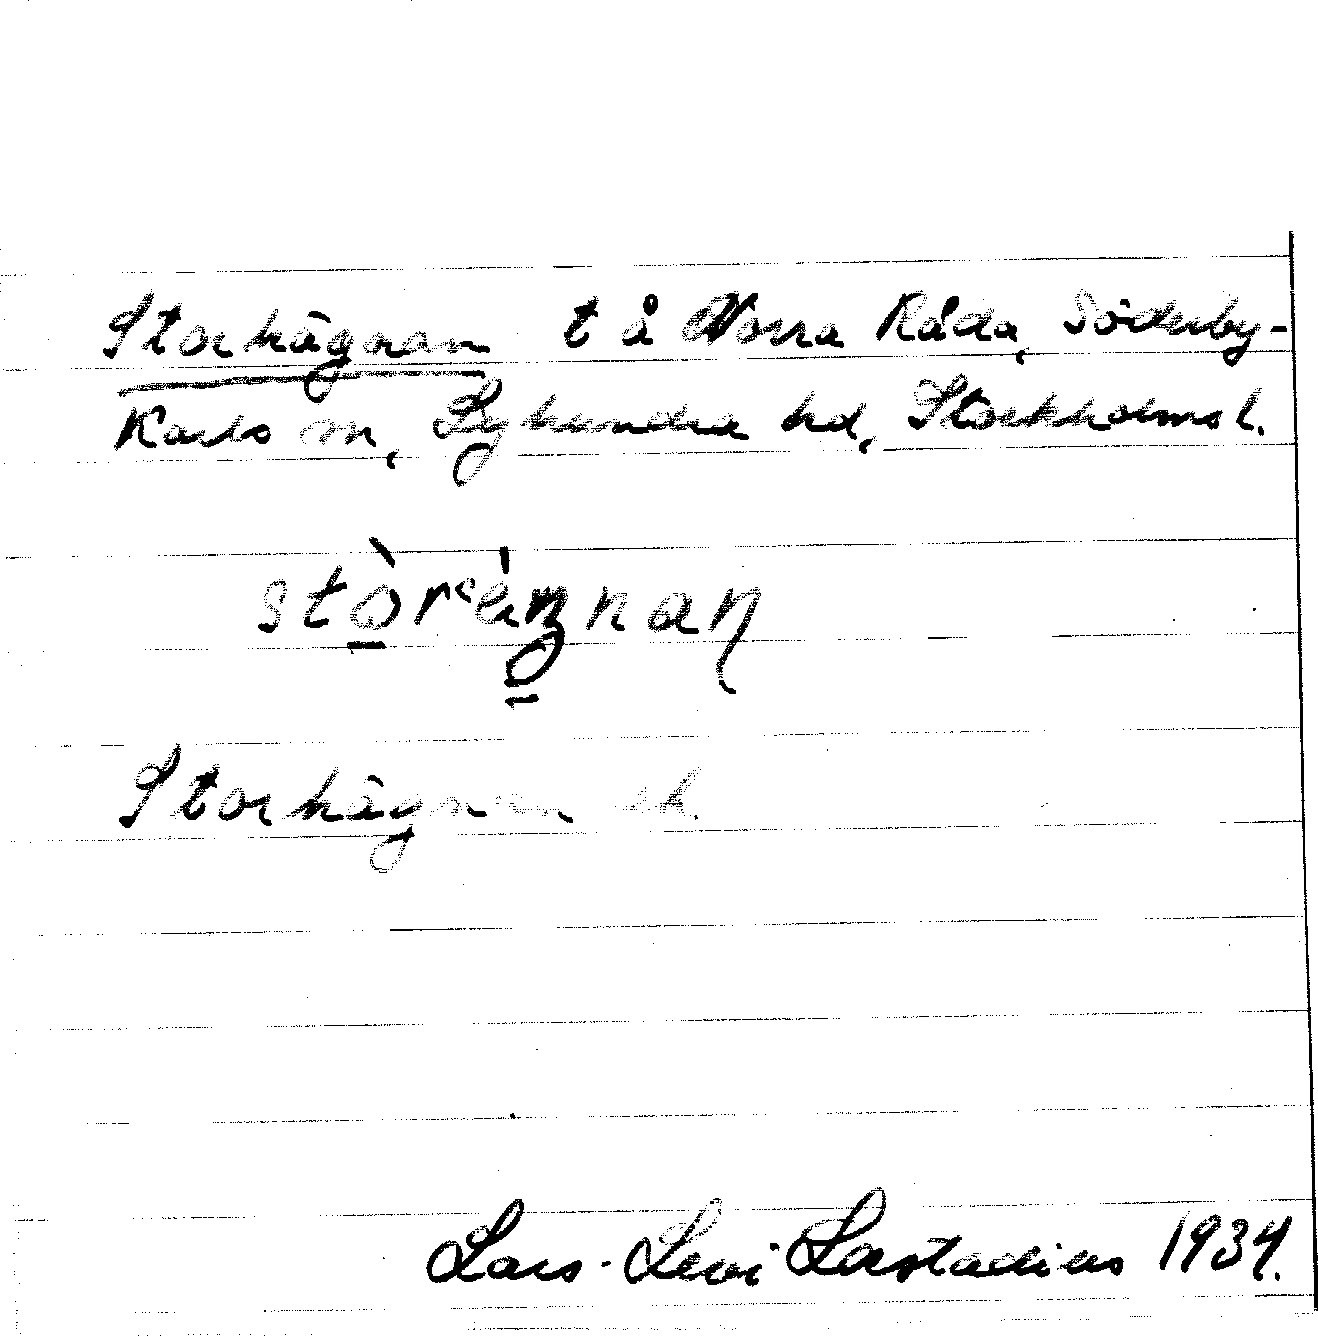 Storhägnan t å Norra Råda, Söderby-
Karls sn, Lyhundra hd, Stockholms l.
Storhägnan ek.
Lars-Levi Læstadius 1934.